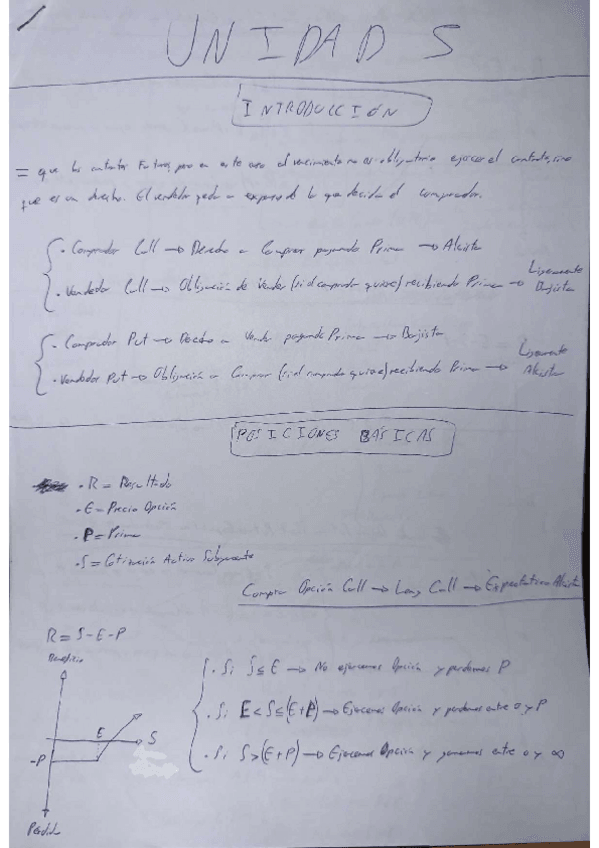 UNIDAD 5
INTRODUCCIÓN
= que los contratos Futuros pero en este caso al vencimiento no es obligatorio ejercer el contrato, sino
que es un derecho. El vendedor queda a expensas de lo que decida el comprador.
· Comprador Call → Derecho a Comprar pagando Prima → Alcista
· Vendedor Call → Obligación de Vender (si el comprador quiere) recibiendo Prima → Ligeramente Bajista
· Comprador Put → Derecho a Vender pagando Prima → Bajista
· Vendedor Put → Obligación a Comprar (si el comprador quiere) recibiendo Prima → Ligeramente Alcista
POSICIONES BÁSICAS
· R = Resultado
· E = Precio Opción
· P = Prima
· S = Cotización Activo Subyacente
Compra Opción Call → Long Call → Expectativa Alcista
R = S - E - P
Beneficio
E
S
-P
Pérdida
· Si S ≤ E → No ejercemos Opción y perdemos P
· Si E < S ≤ (E+P) → Ejercemos Opción y perdemos entre 0 y P
· Si S > (E+P) → Ejercemos Opción y ganamos entre 0 y ∞